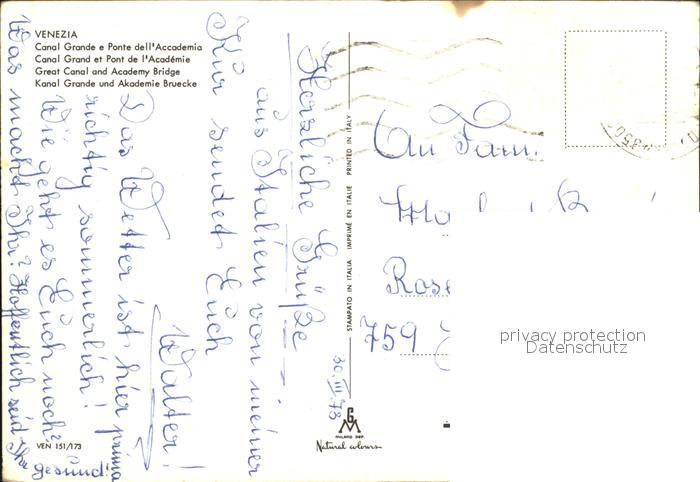 VENEZIA
Canal Grande e Ponte dell'Accademia
Canal Grand et Pont de l'Académie
Great Canal and Academy Bridge
Kanal Grande und Akademie Bruecke
Herzliche Grüße
aus Italien von meiner
Kur sendet Euch
Walter!
Das Wetter ist hier prima
richtig sommerlich!
Wie geht es Euch noch?
Was macht Ihr? Hoffentlich seid Ihr
gesund!
30.III.73
STAMPATO IN ITALIA IMPRIMÉ EN ITALIE PRINTED IN ITALY
An Fam.
Rose
759
privacy protection
Datenschutz
MILANO DEP.
Natural colours
VEN 151/173